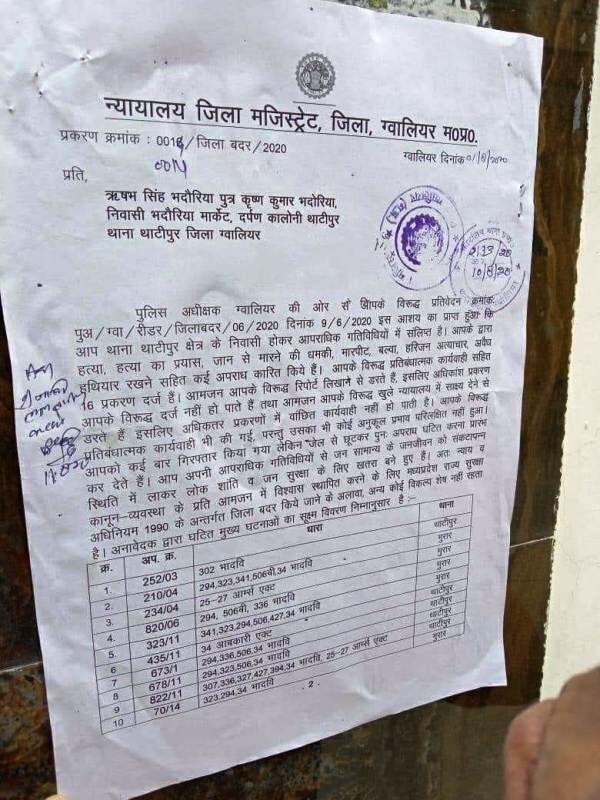 न्यायालय जिला मजिस्ट्रेट, जिला, ग्वालियर म0प्र0.
प्रकरण क्रमांक : 0014/जिला बदर/2020
0014
ग्वालियर दिनांक 01/8/2020
प्रति,
ऋषभ सिंह भदौरिया पुत्र कृष्ण कुमार भदोरिया,
निवासी भदौरिया मार्केट, दर्पण कालोनी थाटीपुर
थाना थाटीपुर जिला ग्वालियर
पुलिस अधीक्षक ग्वालियर की ओर से आपके विरूद्ध प्रतिवेदन क्रमांक
पुअ/ग्वा/रीडर/जिलाबदर/06/2020 दिनांक 9/6/2020 इस आशय का प्राप्त हुआ कि
आप थाना थाटीपुर क्षेत्र के निवासी होकर आपराधिक गतिविधियों में संलिप्त है। आपके द्वारा
हत्या, हत्या का प्रयास, जान से मारने की धमकी, मारपीट, बल्वा, हरिजन अत्याचार, अवैध
हथियार रखने सहित कई अपराध कारित किये हैं। आपके विरूद्ध प्रतिबंधात्मक कार्यवाही सहित
16 प्रकरण दर्ज हैं। आमजन आपके विरूद्ध रिपोर्ट लिखाने से डरते हैं, इसलिए अधिकांश प्रकरण
आपके विरूद्ध दर्ज नहीं हो पाते हैं तथा आमजन आपके विरूद्ध खुले न्यायालय में साक्ष्य देने से
डरते हैं इसलिए अधिकतर प्रकरणों में वांछित कार्यवाही नहीं हो पाती है। आपके विरूद्ध
प्रतिबंधात्मक कार्यवाही भी की गई, परन्तु उसका भी कोई अनुकूल प्रभाव परिलक्षित नहीं हुआ।
आपको कई बार गिरफ्तार किया गया लेकिन जेल से छूटकर पुनः अपराध घटित करना प्रारंभ
कर देते हैं। आप अपनी आपराधिक गतिविधियों से जन सामान्य के जनजीवन को संकटापन्न
स्थिति में लाकर लोक शांति व जन सुरक्षा के लिए खतरा बने हुए हैं। अतः न्याय व
कानून-व्यवस्था के प्रति आमजन में विश्वास स्थापित करने के लिए मध्यप्रदेश राज्य सुरक्षा
अधिनियम 1990 के अन्तर्गत जिला बदर किये जाने के अलावा, अन्य कोई विकल्प शेष नहीं रहता
है। अनावेदक द्वारा घटित मुख्य घटनाओं का सूक्ष्म विवरण निम्नानुसार है :-
क्र. अप. क्र. धारा थाना
1. 252/03 302 भादवि थाटीपुर
2. 210/04 294,323,341,506बी,34 भादवि मुरार
3. 234/04 25-27 आर्म्स एक्ट मुरार
4. 820/06 294, 506बी, 336 भादवि मुरार
5. 323/11 341,323,294,506,427,34 भादवि थाटीपुर
6 435/11 34 आबकारी एक्ट थाटीपुर
7 673/1 294,336,506,34 भादवि मुरार
8 678/11 294,323,506,34 भादवि थाटीपुर
9 822/11 307,336,327,427,394,34 भादवि, 25-27 आर्म्स एक्ट थाटीपुर
10 70/14 323,294,34 भादवि मुरार
- 2 -